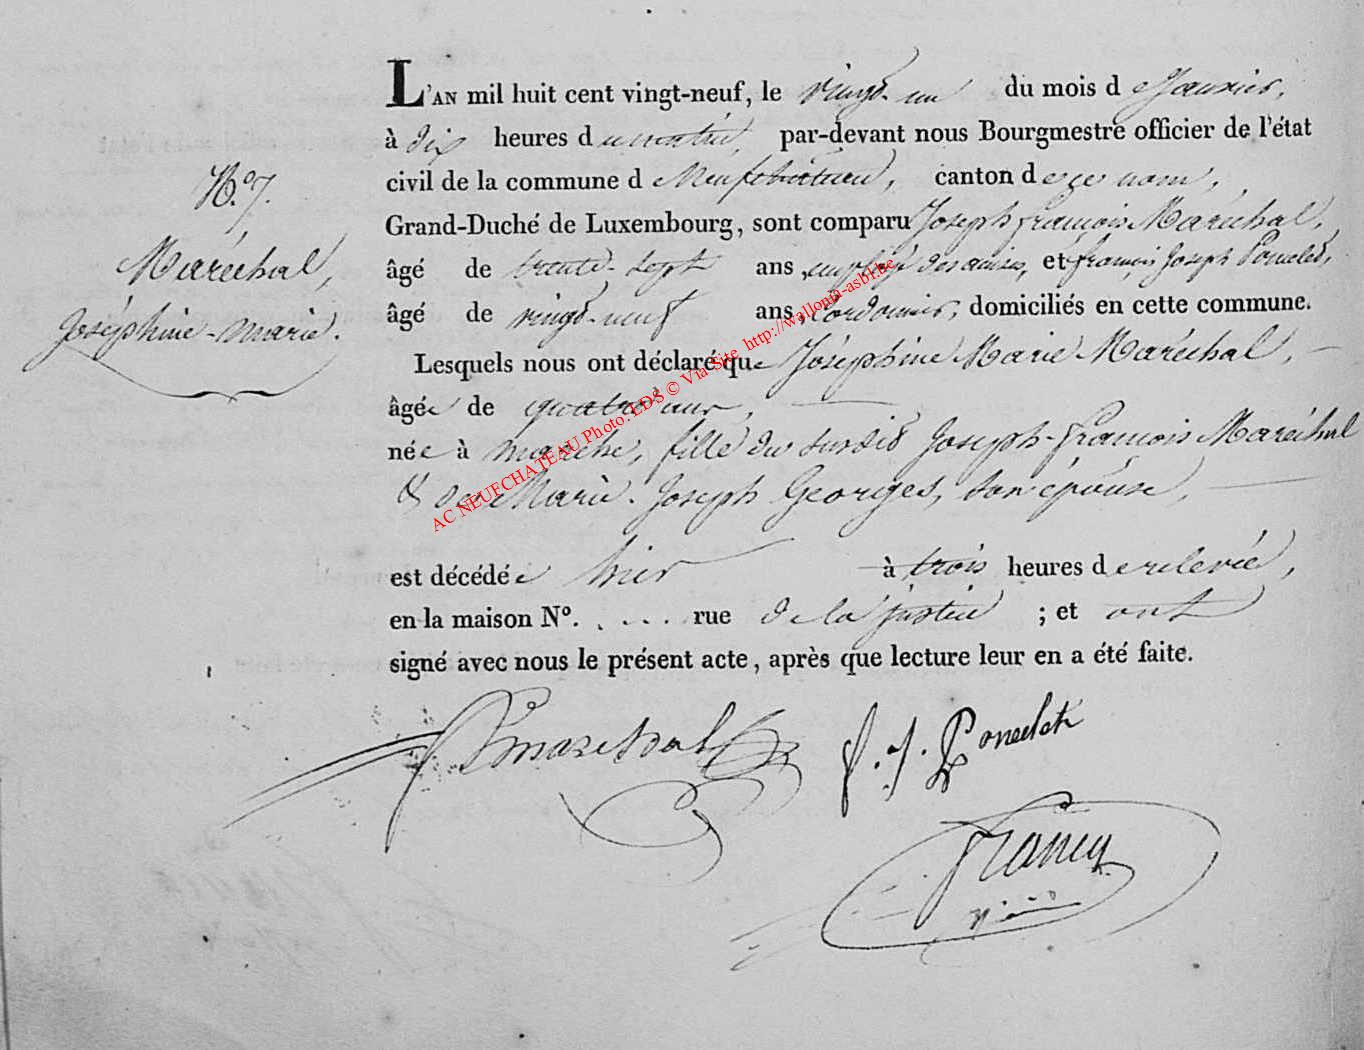 L'AN mil huit cent vingt-neuf, le vingt-un du mois de Janvier,
à dix heures du matin, par-devant nous Bourgmestre officier de l'état
civil de la commune de Neufchâteau, canton de ce nom,
Grand-Duché de Luxembourg, sont comparu Joseph François Maréchal,
âgé de trente-sept ans, employé des accises, et françois Joseph Poncelet,
âgé de vingt-neuf ans, Cordonnier, domiciliés en cette commune.
Lesquels nous ont déclaré que Joséphine Marie Maréchal,
âgée de quatre ans,
née à Marche, fille du susdit Joseph-françois Maréchal
& de Marie-Joseph Georges, son épouse
est décédée hier à trois heures de relevée,
en la maison N°. . . . . rue de la justice ; et ont
signé avec nous le présent acte, après que lecture leur en a été faite.
N.° 7.
Maréchal,
Joséphine-marie.
AC NEUFCHATEAU Photo: EDS © Via Site http://wallonia-asbl.be
Maréchal
f. J. Poncelet